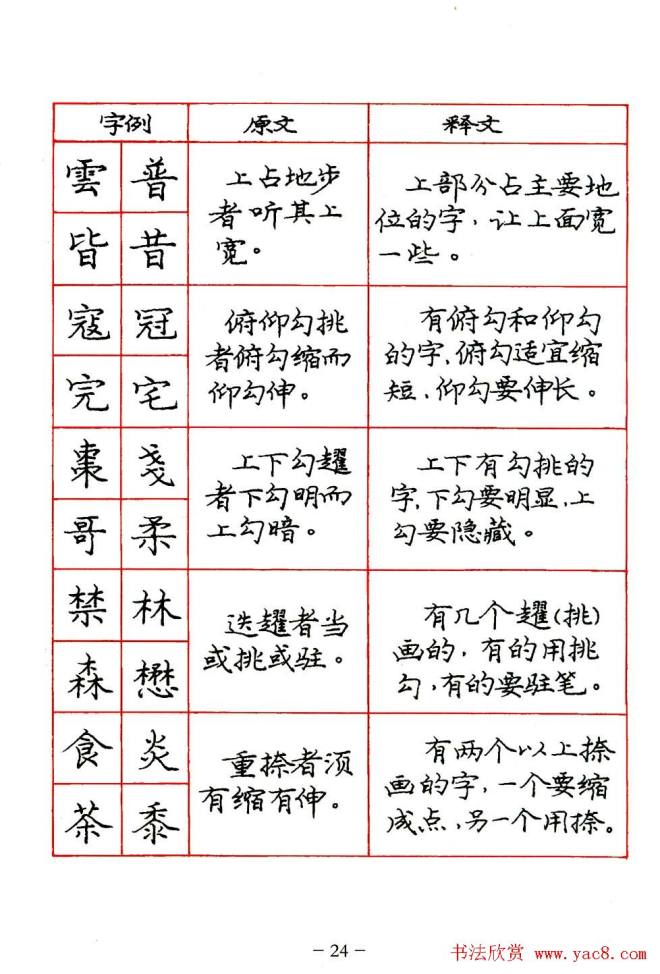 字例 原文 释文
雲 普
皆 昔
上占地步
者听其上
宽。
上部分占主要地
位的字，让上面宽
一些。
寇 冠
完 宅
俯仰勾挑
者俯勾缩而
仰勾伸。
有俯勾和仰勾
的字，俯勾适宜缩
短，仰勾要伸长。
棗 戔
哥 柔
上下勾趯
者下勾明而
上勾暗。
上下有勾挑的
字，下勾要明显，上
勾要隐藏。
禁 林
森 懋
迭趯者当
或挑或驻。
有几个趯(挑)
画的，有的用挑
勾，有的要驻笔。
食 炎
茶 黍
重捺者须
有缩有伸。
有两个以上捺
画的字，一个要缩
成点，另一个用捺。
- 24 -
书法欣赏 www.yac8.com